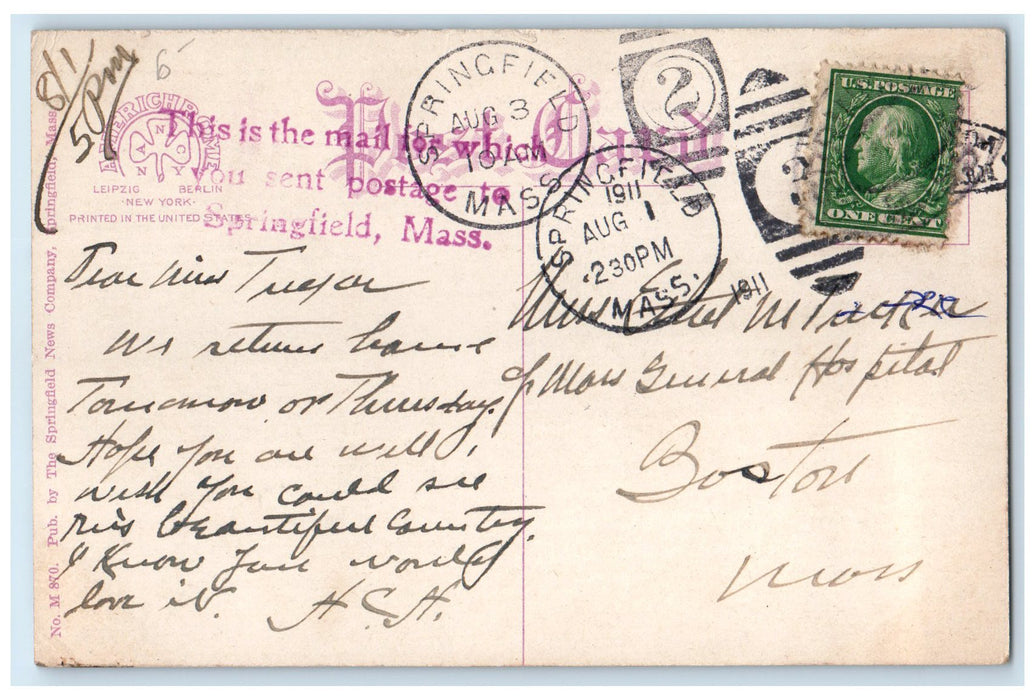 8/1
50pm
6
AMERICHROME
A N C
N Y
LEIPZIG BERLIN
·NEW YORK·
PRINTED IN THE UNITED STATES
Post Card
This is the mail for which
You sent postage to
Springfield, Mass.
SPRINGFIELD
AUG 3
10 AM
MASS
2
SPRINGFIELD
1911
AUG 1
230PM
MASS.
1911
2
U.S. POSTAGE
ONE CENT
No. M 870. Pub. by The Springfield News Company, Springfield, Mass.
Dear Miss
We return home
Tomorrow or Thursday.
Hope you are well,
wish you could see
this beautiful Country.
I know you would
love it. H.C.H.
Miss M
c/o Mass General Hospital
Boston
Mass